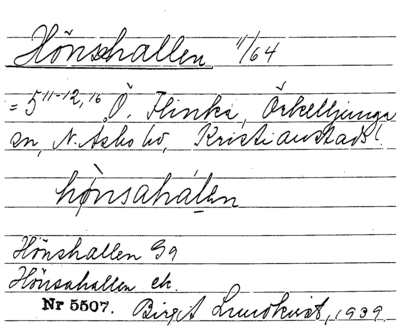 Hönshallen 11/64
= 5 11-12, 16 Ö. Flinka, Örkelljunga
sn, N. Åsbo hd, Kristianstads l.
hö̀nsahálen
Hönshallen Gg
Hönsahallen ek.
Nr 5507. Birgit Lundkvist, 1939.